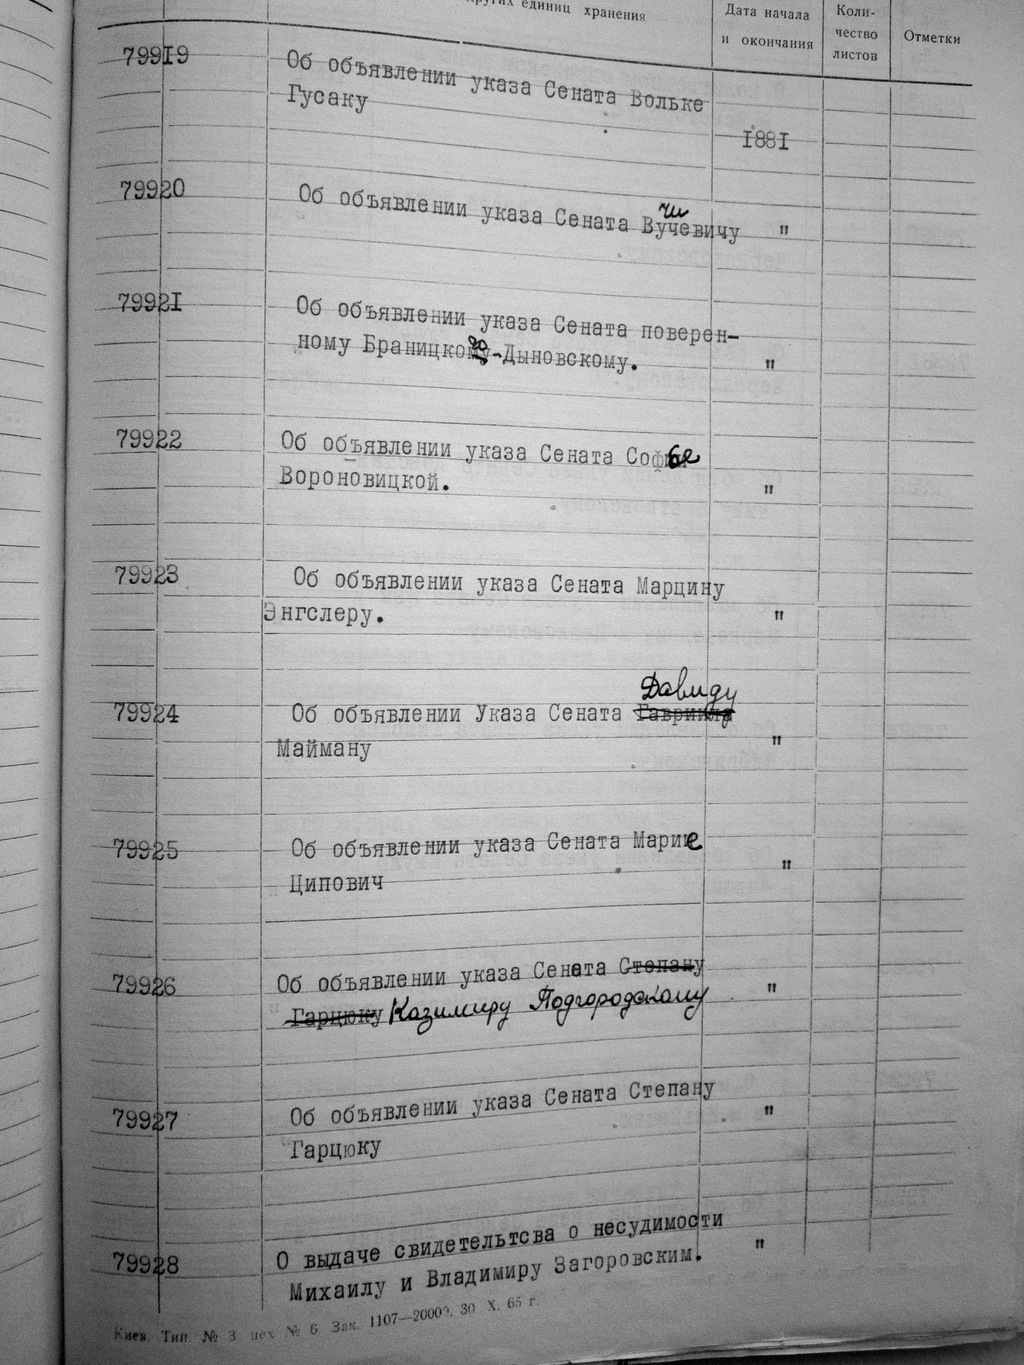 других единиц хранения
Дата начала
и окончания
Коли-
чество
листов
Отметки
79919 Об объявлении указа Сената Вольке
Гусаку
1881
79920 Об объявлении указа Сената Вучевичу "
чи
79921 Об объявлении указа Сената поверен-
ному Браницкого-Дыновскому. "
79922 Об объявлении указа Сената Софье
Вороновицкой. "
79923 Об объявлении указа Сената Марцину
Энгслеру. "
Давиду
79924 Об объявлении Указа Сената Гавриилу
Майману "
79925 Об объявлении указа Сената Марие
Ципович "
79926 Об объявлении указа Сената Степану
Гарцюку Казимиру Подгородскому "
79927 Об объявлении указа Сената Степану
Гарцюку "
79928 О выдаче свидетельтсва о несудимости
Михаилу и Владимиру Загоровским. "
Киев. Тип. № 3 цех № 6 Зак. 1107—20000. 30 X. 65 г.